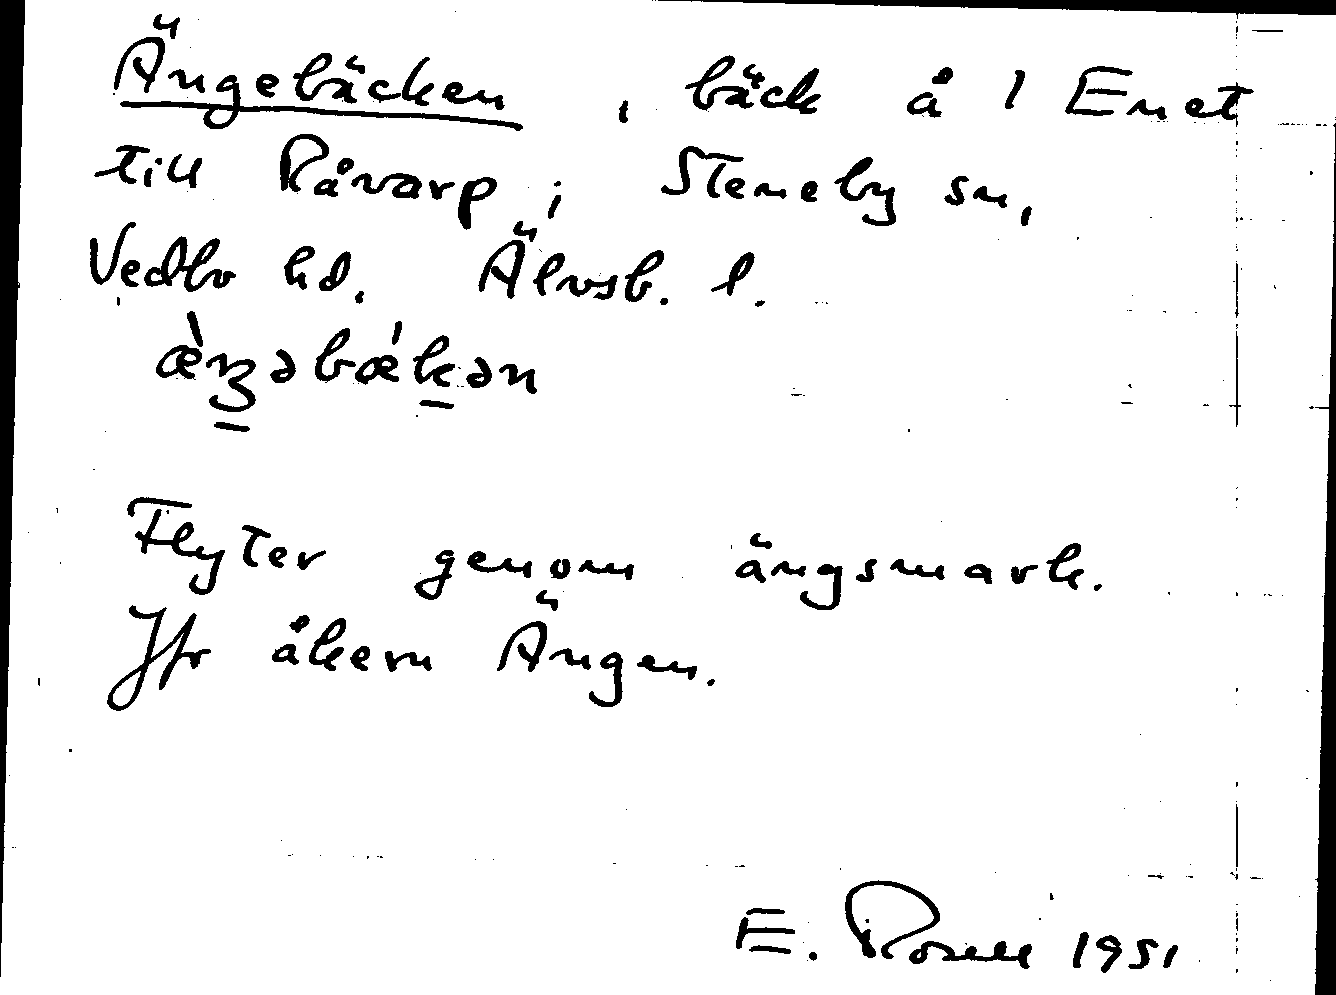 Ängebäcken, bäck å 1 Enet
till Råvarp i Steneby sn,
Vedbo hd. Älvsb. l.
æ̀ŋəbǽkən
Flyter genom ängsmark.
Jfr åkern Ängen.
E. Rosell 1951